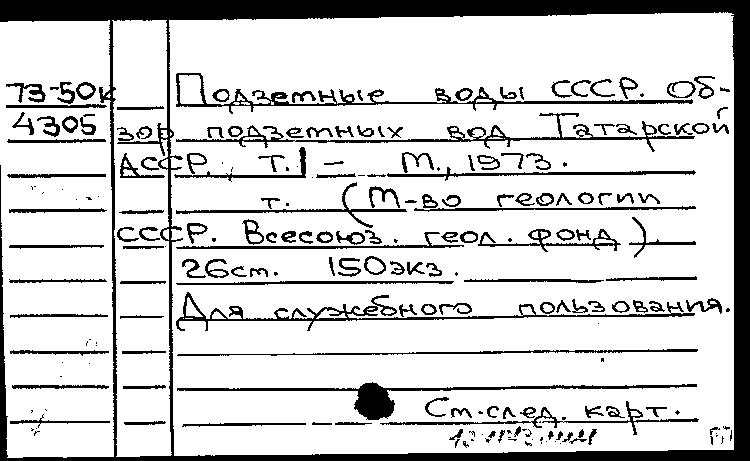 73-50к Подземные воды СССР. Об-
4305 зор подземных вод Татарской
АССР. Т.1 – М., 1973.
т. (М-во геологии
СССР. Всесоюз. геол. фонд).
26см. 150экз.
Для служебного пользования.
См.след. карт.